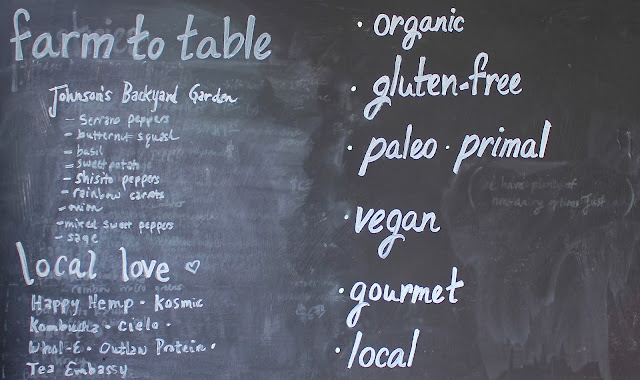 farm to table
Johnson's Backyard Garden
- Serrano peppers
- butternut squash
- basil
- sweet potato
- shisito peppers
- rainbow carrots
- onion
- mixed sweet peppers
- sage
local love ♡
Happy Hemp · Kosmic
Kombucha · Cielo ·
Whol-E · Outlaw Protein ·
Tea Embassy
· organic
· gluten-free
· paleo · primal
· vegan
· gourmet
· local